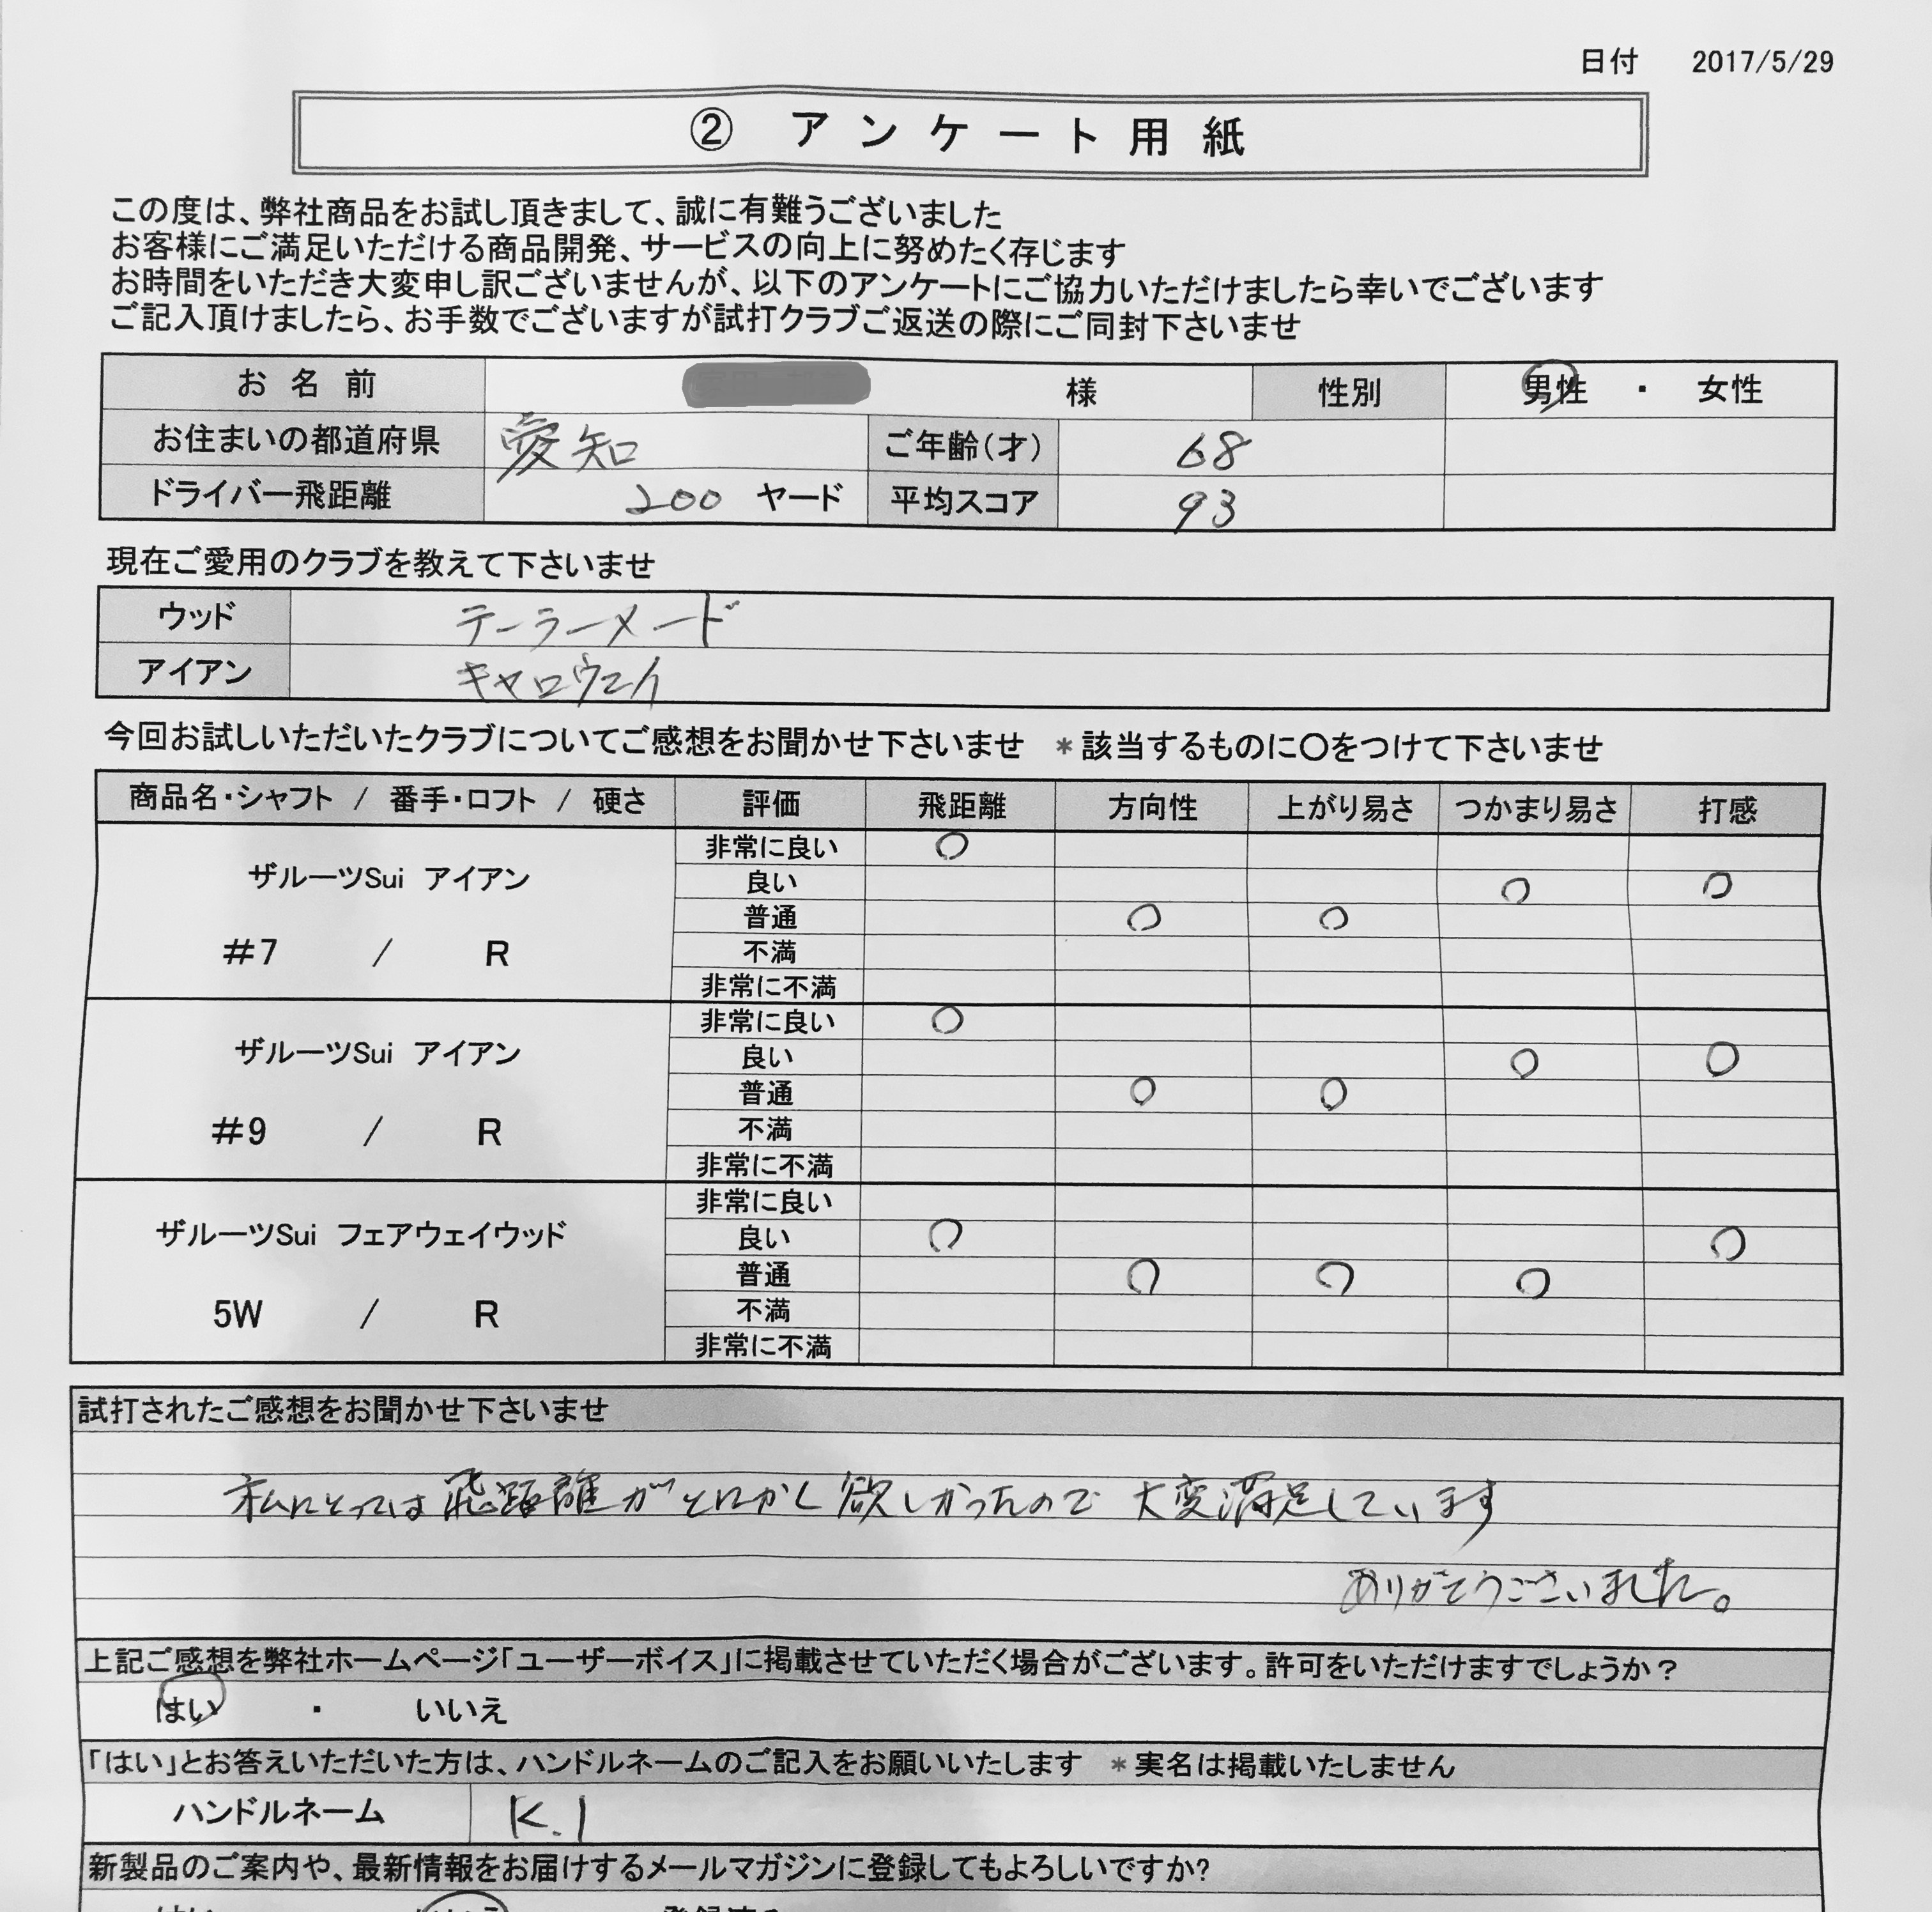 日付 2017/5/29
② アンケート用紙
この度は、弊社商品をお試し頂きまして、誠に有難うございました
お客様にご満足いただける商品開発、サービスの向上に努めたく存じます
お時間をいただき大変申し訳ございませんが、以下のアンケートにご協力いただけましたら幸いでございます
ご記入頂けましたら、お手数でございますが試打クラブご返送の際にご同封下さいませ
お名前 様 性別 男性 ・ 女性
お住まいの都道府県 愛知 ご年齢(才) 68
ドライバー飛距離 200 ヤード 平均スコア 93
現在ご愛用のクラブを教えて下さいませ
ウッド テーラーメード
アイアン キャロウェイ
今回お試しいただいたクラブについてご感想をお聞かせ下さいませ *該当するものに〇をつけて下さいませ
商品名・シャフト / 番手・ロフト / 硬さ 評価 飛距離 方向性 上がり易さ つかまり易さ 打感
ザルーツSui アイアン
#7 / R
非常に良い 〇
良い 〇 〇
普通 〇 〇
不満
非常に不満
ザルーツSui アイアン
#9 / R
非常に良い 〇
良い 〇 〇
普通 〇 〇
不満
非常に不満
ザルーツSui フェアウェイウッド
5W / R
非常に良い
良い 〇 〇
普通 〇 〇 〇
不満
非常に不満
試打されたご感想をお聞かせ下さいませ
私にとっては飛距離がとにかく欲しかったので大変満足しています
ありがとうございました。
上記ご感想を弊社ホームページ「ユーザーボイス」に掲載させていただく場合がございます。許可をいただけますでしょうか？
はい ・ いいえ
「はい」とお答えいただいた方は、ハンドルネームのご記入をお願いいたします *実名は掲載いたしません
ハンドルネーム K.I
新製品のご案内や、最新情報をお届けするメールマガジンに登録してもよろしいですか?